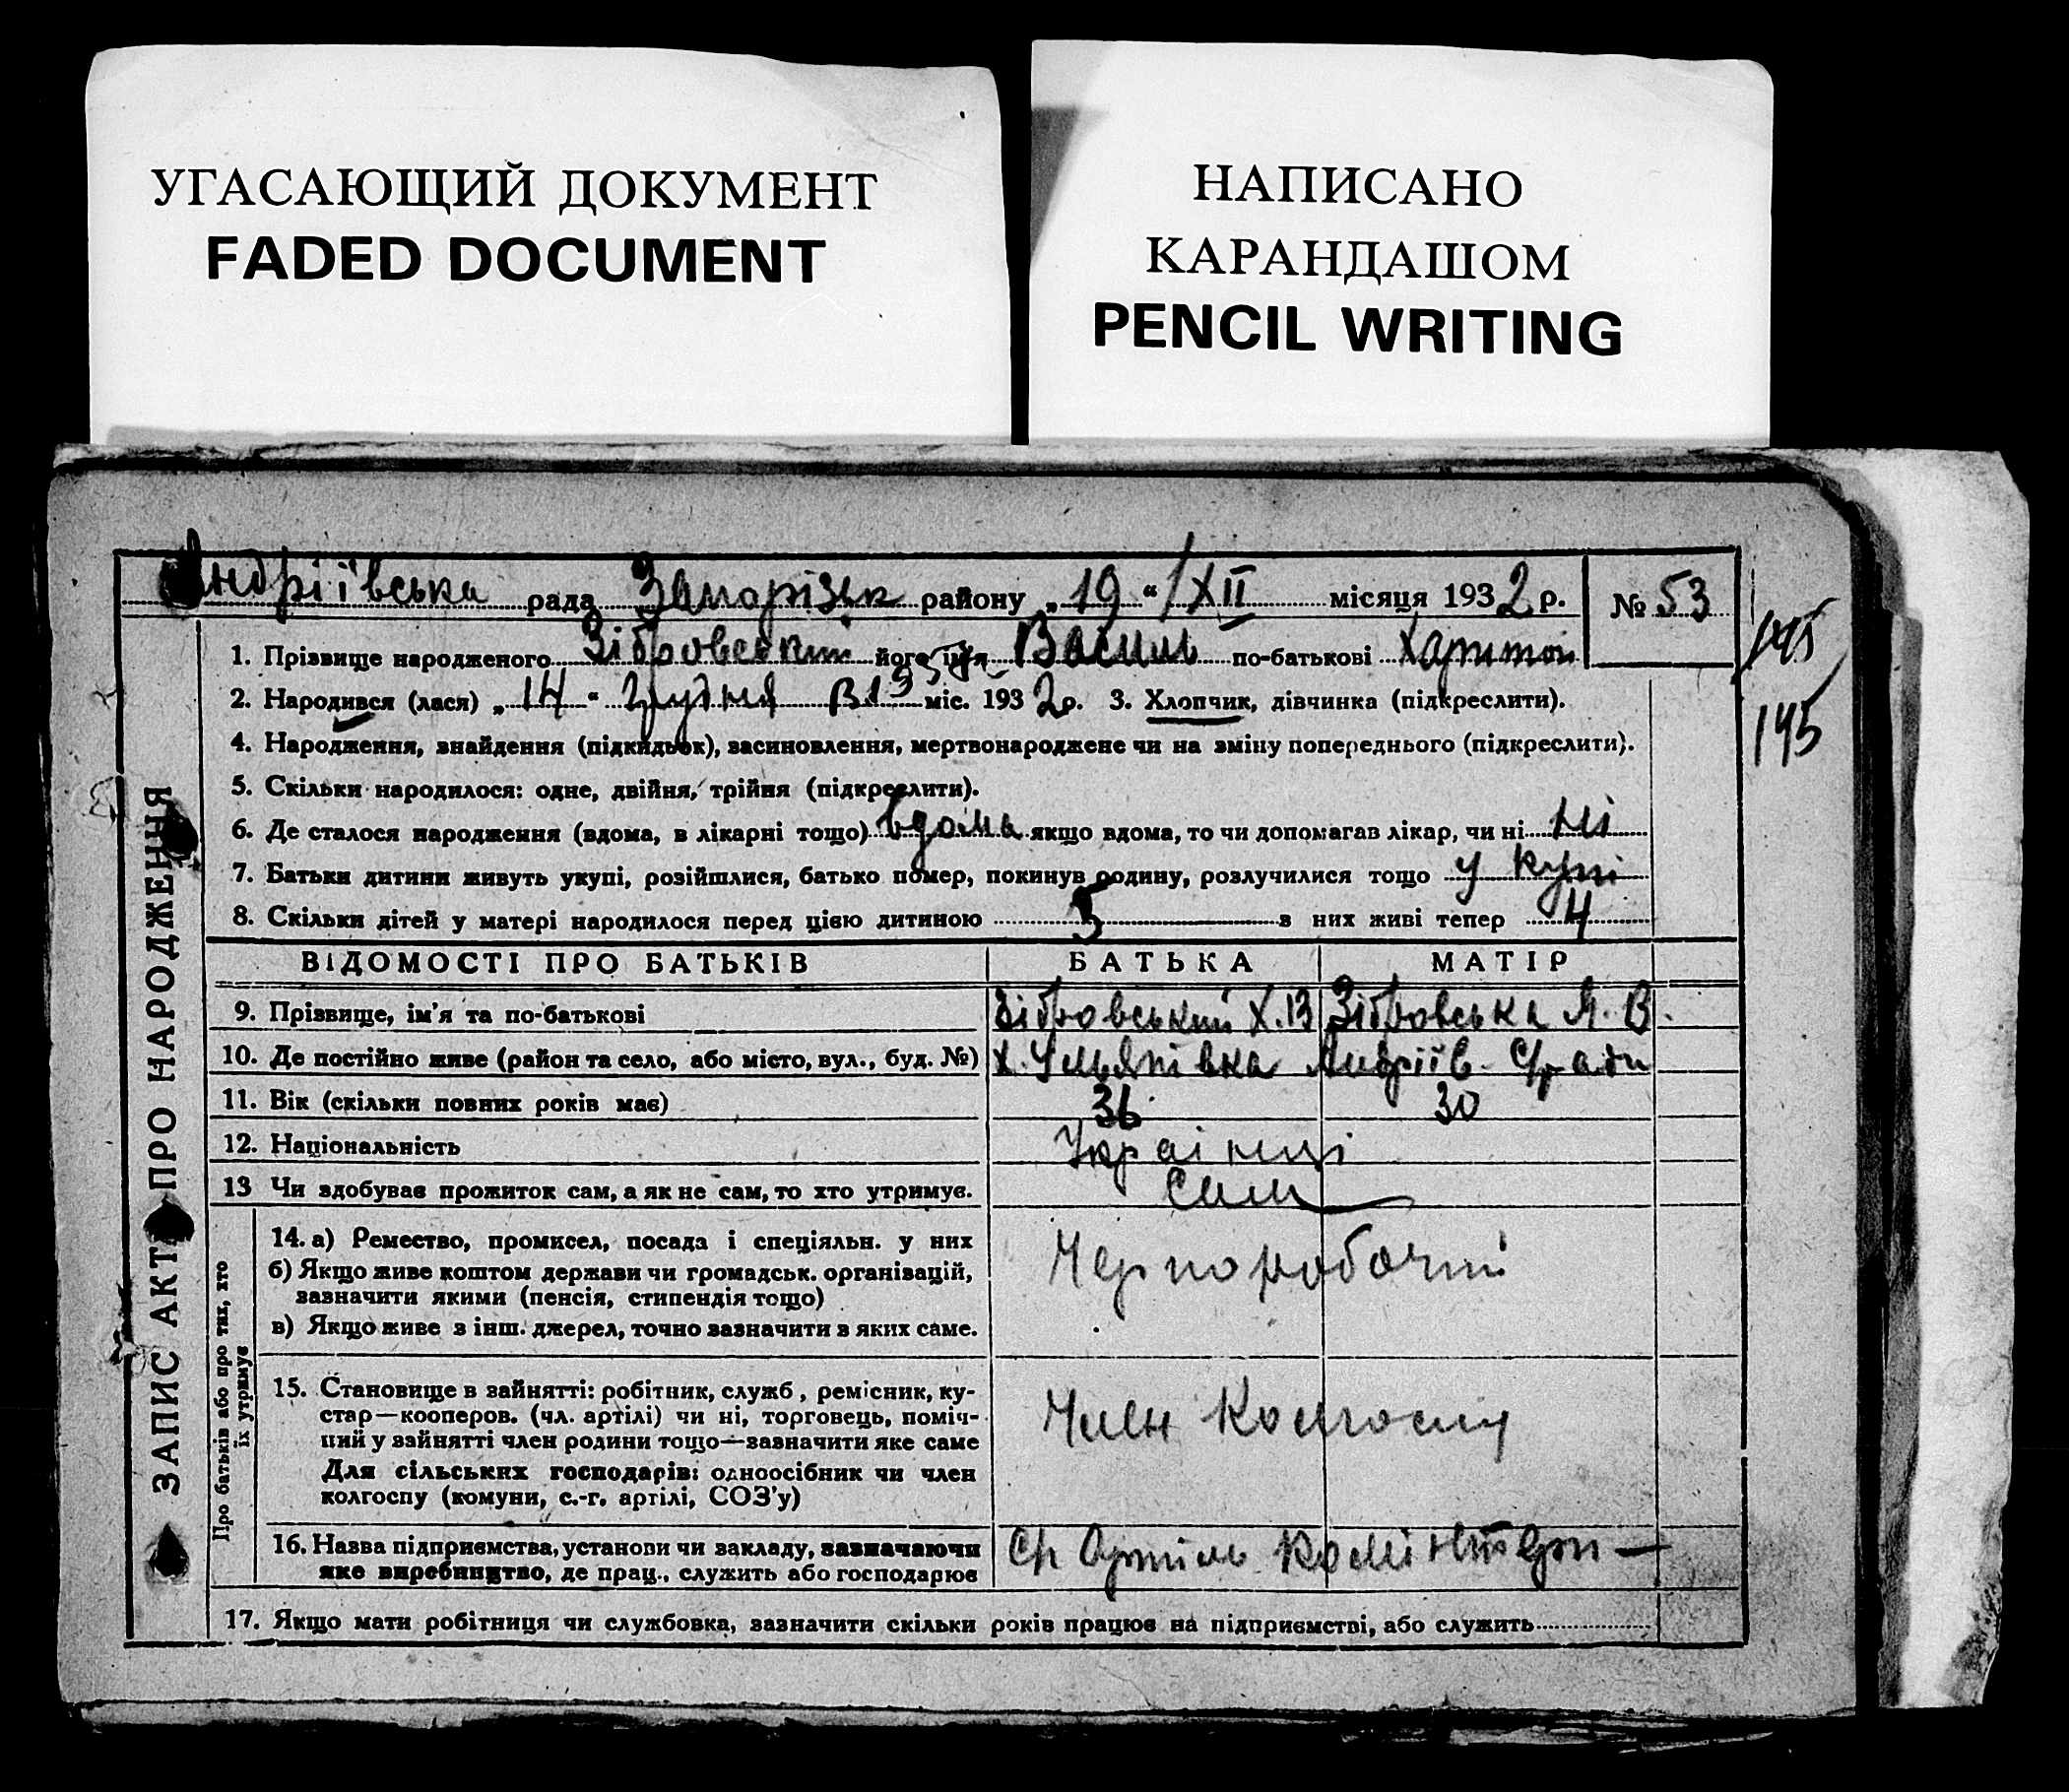 УГАСАЮЩИЙ ДОКУМЕНТ
FADED DOCUMENT
НАПИСАНО
КАРАНДАШОМ
PENCIL WRITING
Андріївська рада Запорізьк району „19“ /XII місяця 1932 р. № 53
145
145
1. Прізвище народженого Зібровський його ім'я Василь по-батькові Харитон
2. Народився (лася) „14“ грудня міс. 1932 р. 3. Хлопчик, дівчинка (підкреслити).
4. Народження, знайдення (підкидьок), засиновлення, мертвонароджене чи на зміну попереднього (підкреслити).
5. Скільки народилося: одне, двійня, трійня (підкреслити).
6. Де сталося народження (вдома, в лікарні тощо) вдома якщо вдома, то чи допомагав лікар, чи ні ні
7. Батьки дитини живуть укупі, розійшлися, батько помер, покинув родину, розлучилися тощо у купі
8. Скільки дітей у матері народилося перед цією дитиною 5 з них живі тепер 4
ЗАПИС АКТУ ПРО НАРОДЖЕННЯ
ВІДОМОСТІ ПРО БАТЬКІВ БАТЬКА МАТІР
9. Прізвище, ім'я та по-батькові Зібровський Х. В Зібровська Я. В.
10. Де постійно живе (район та село, або місто, вул., буд. №) х. Ульянівка Андріїв. С/ради
11. Вік (скільки повних років має) 36 30
12. Національність Украінці
13 Чи здобував прожиток сам, а як не сам, то хто утримує. Сам
Про батьків або про тих, хто
їх утримує
14. а) Ремество, промисел, посада і спеціяльн. у них Черноробочий
б) Якщо живе коштом держави чи громадськ. організацій,
зазначити якими (пенсія, стипендія тощо)
в) Якщо живе з інш. джерел, точно зазначити з яких саме.
15. Становище в зайнятті: робітник, служб, ремісник, ку-
стар—кооперов. (чл. артілі) чи ні, торговець, поміч-
ний у зайнятті член родини тощо—зазначити яке саме
Для сільських господарів: одноосібник чи член
колгоспу (комуни, с.-г. артілі, СОЗ'у)
Член Колгоспу
16. Назва підприємства, установи чи закладу, зазначаючи
яке виробництво, де прац., служить або господарює
Артіль Комінтерн —
17. Якщо мати робітниця чи службовка, зазначити скільки років працює на підприємстві, або служить